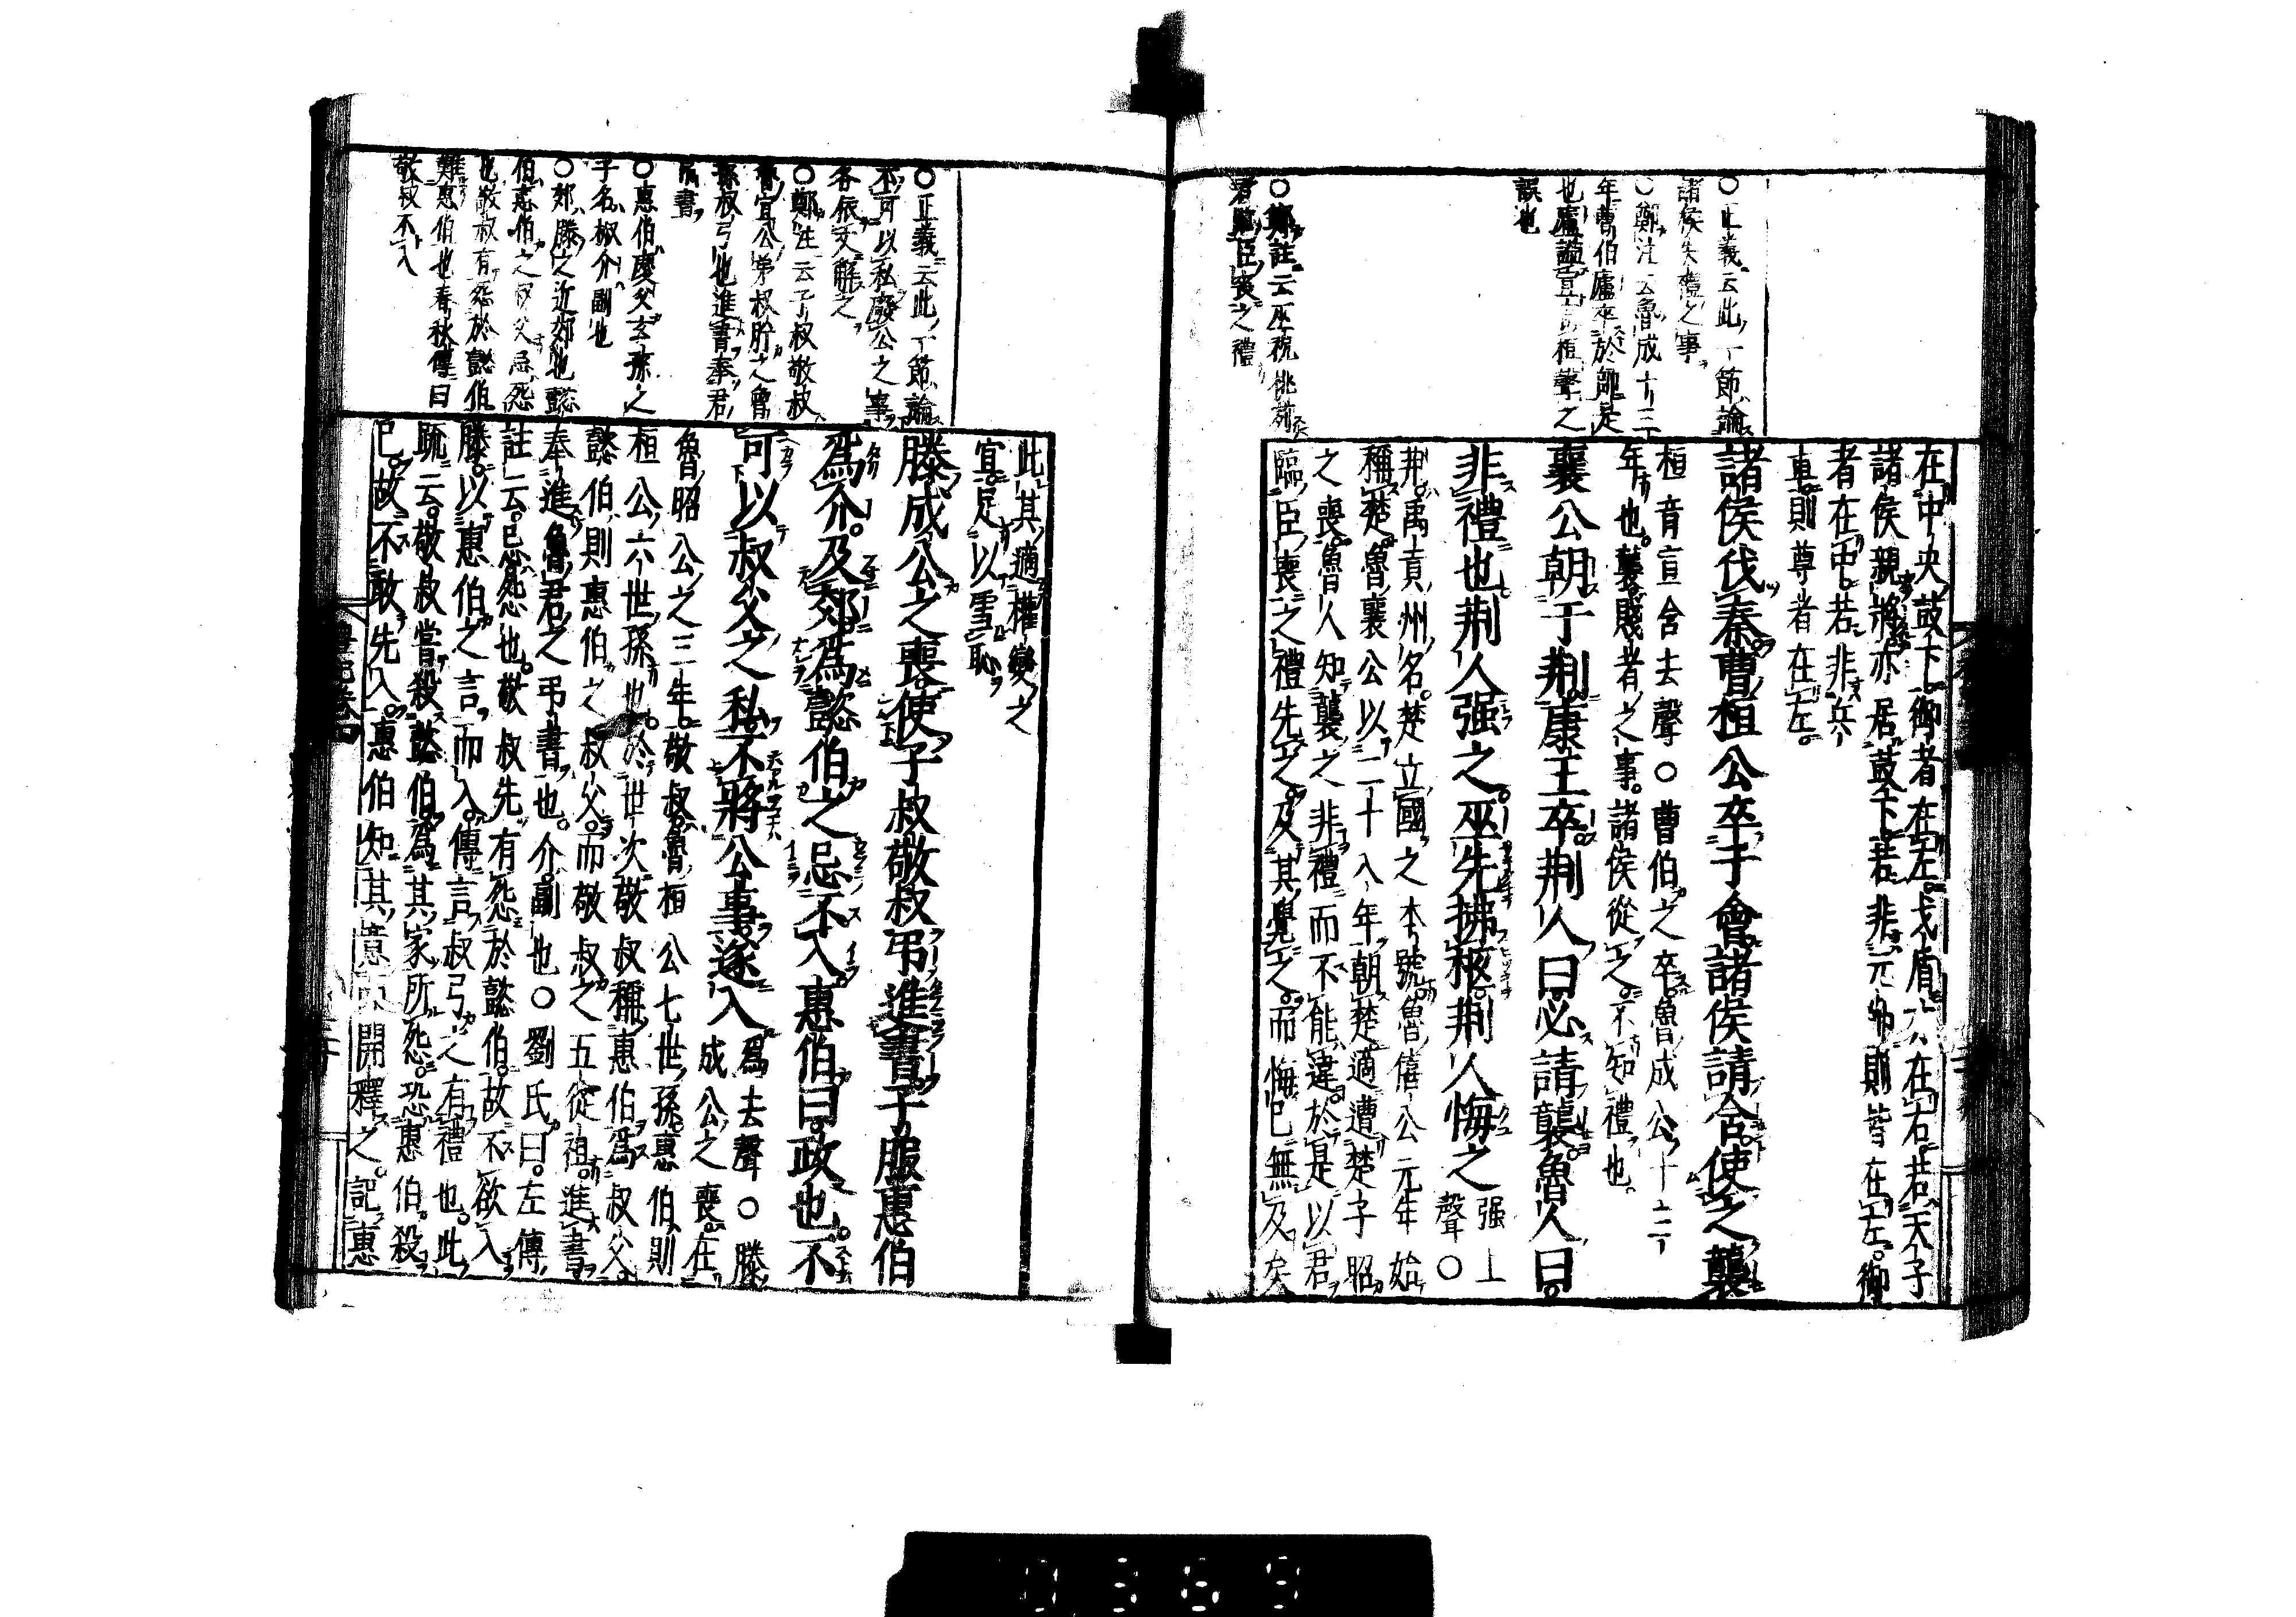 〇正義云此一節論
諸侯失禮之事
〇鄭注云魯成十三
年曹伯廬卒於師是
也廬謚宣言桓聲之
誤也
〇鄭註云巫祝桃茢
君臨臣喪之禮
在中央鼓下御者在左戈盾亦在右若天子
諸侯親將亦居鼓下若非元帥則皆在左御
者在中若非兵
車則尊者在左
諸侯伐秦曹桓公卒于會諸侯請含使之襲
桓音宣含去聲〇曹伯之卒魯成公十三
年也襲賤者之事諸侯從之不知禮也
襄公朝于荆康王卒荆人曰必請襲魯人曰
非禮也荆人强之巫先拂柩荆人悔之
强上
聲〇
荆禹貢州名楚立國之本號魯僖公元年始
稱楚魯襄公以二十八年朝楚適遭楚子昭
之喪魯人知襲之非禮而不能違於是以君
臨臣喪之禮先之及其覺之而悔已無及矣
〇正義云此一節論
不可以私廢公之事
各依文解之
〇鄭注云子叔敬叔
魯宣公弟叔肸之曾
孫叔弓也進書奉君
弔書
〇惠伯慶父玄孫之
子名椒介副也
〇郊滕之近郊也懿
伯惠伯之叔父忌怨
也敬叔有怨於懿伯
難惠伯也春秋傳曰
敬叔不入
此其適權變之
宜足以雪恥
滕成公之喪使子叔敬叔弔進書子服惠伯
爲介及郊爲懿伯之忌不入惠伯曰政也不
可以叔父之私不將公事遂入
爲去聲〇滕
成公之喪在
魯昭公之三年敬叔魯桓公七世孫惠伯則
桓公六世孫也於世次敬叔稱惠伯爲叔父
懿伯則惠伯之叔父而敬叔之五從祖進書
奉進魯君之弔書也介副也〇劉氏曰左傳
註云忌怨也敬叔先有怨於懿伯故不欲入
滕以惠伯之言而入傳言叔弓之有禮也此
疏云敬叔嘗殺懿伯爲其家所怨恐惠伯殺
已故不敢先入惠伯知其意而開釋之記惠
禮記卷四